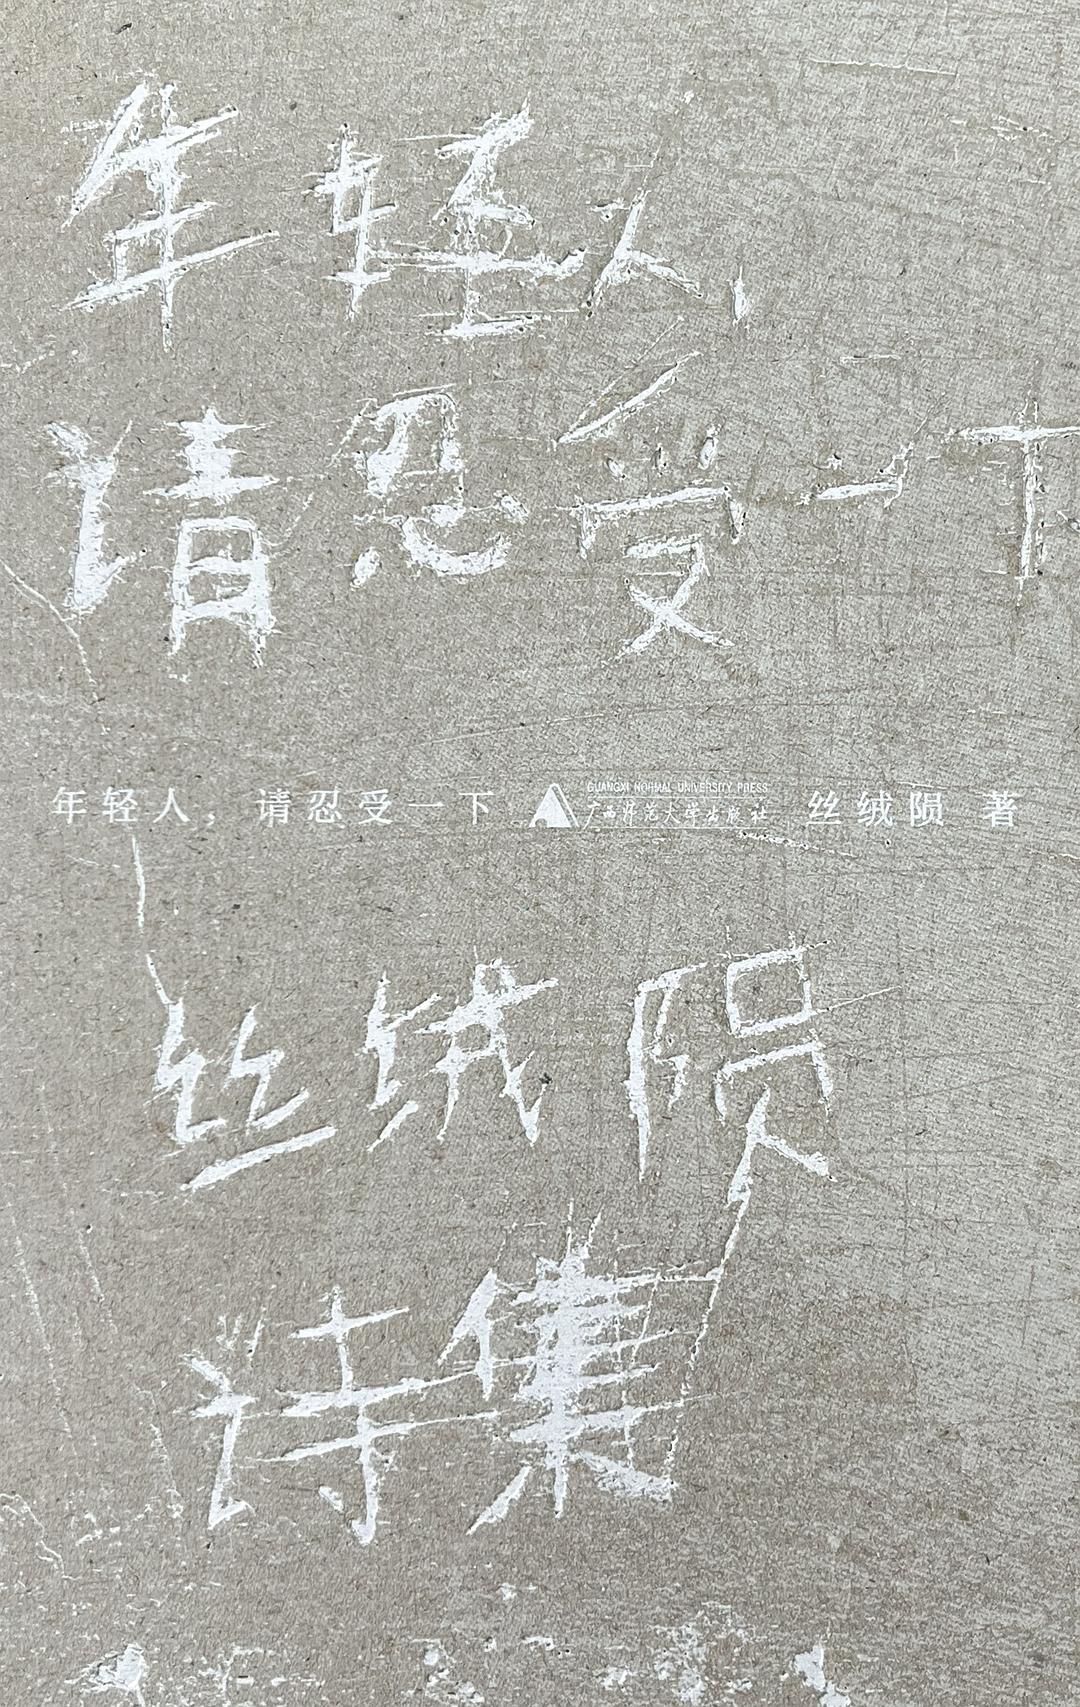 年轻人，
请忍受一下
年轻人，请忍受一下
GUANGXI NORMAL UNIVERSITY PRESS
广西师范大学出版社
丝绒陨 著
丝绒陨
诗集